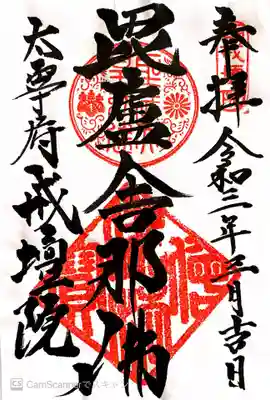 奉拝 令和三年三月吉日
毘盧舎那佛
太宰府 戒壇院
CS CamScannerでスキャン